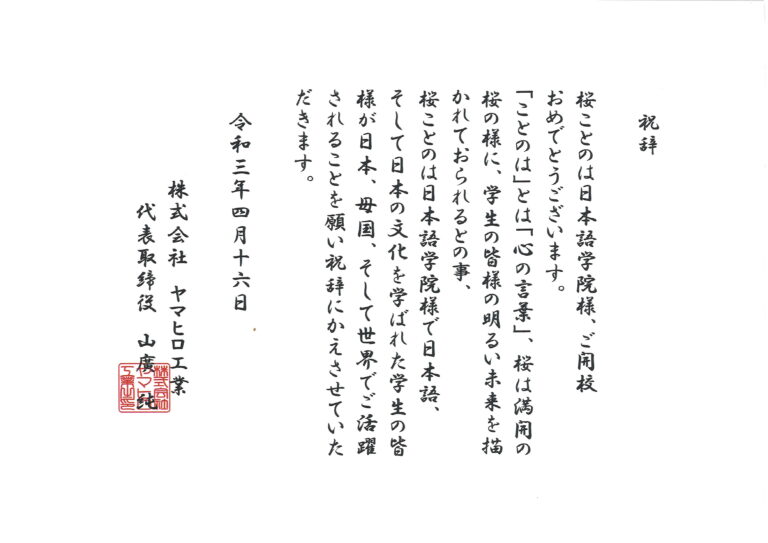 祝辞
桜ことのは日本語学院様、ご開校
おめでとうございます。
「ことのは」とは「心の言葉」、桜は満開の
桜の様に、学生の皆様の明るい未来を描
かれておられるとの事、
桜ことのは日本語学院様で日本語、
そして日本の文化を学ばれた学生の皆
様が日本、母国、そして世界でご活躍
されることを願い祝辞にかえさせていた
だきます。
令和三年四月十六日
株式会社 ヤマヒロ工業
代表取締役 山廣 純